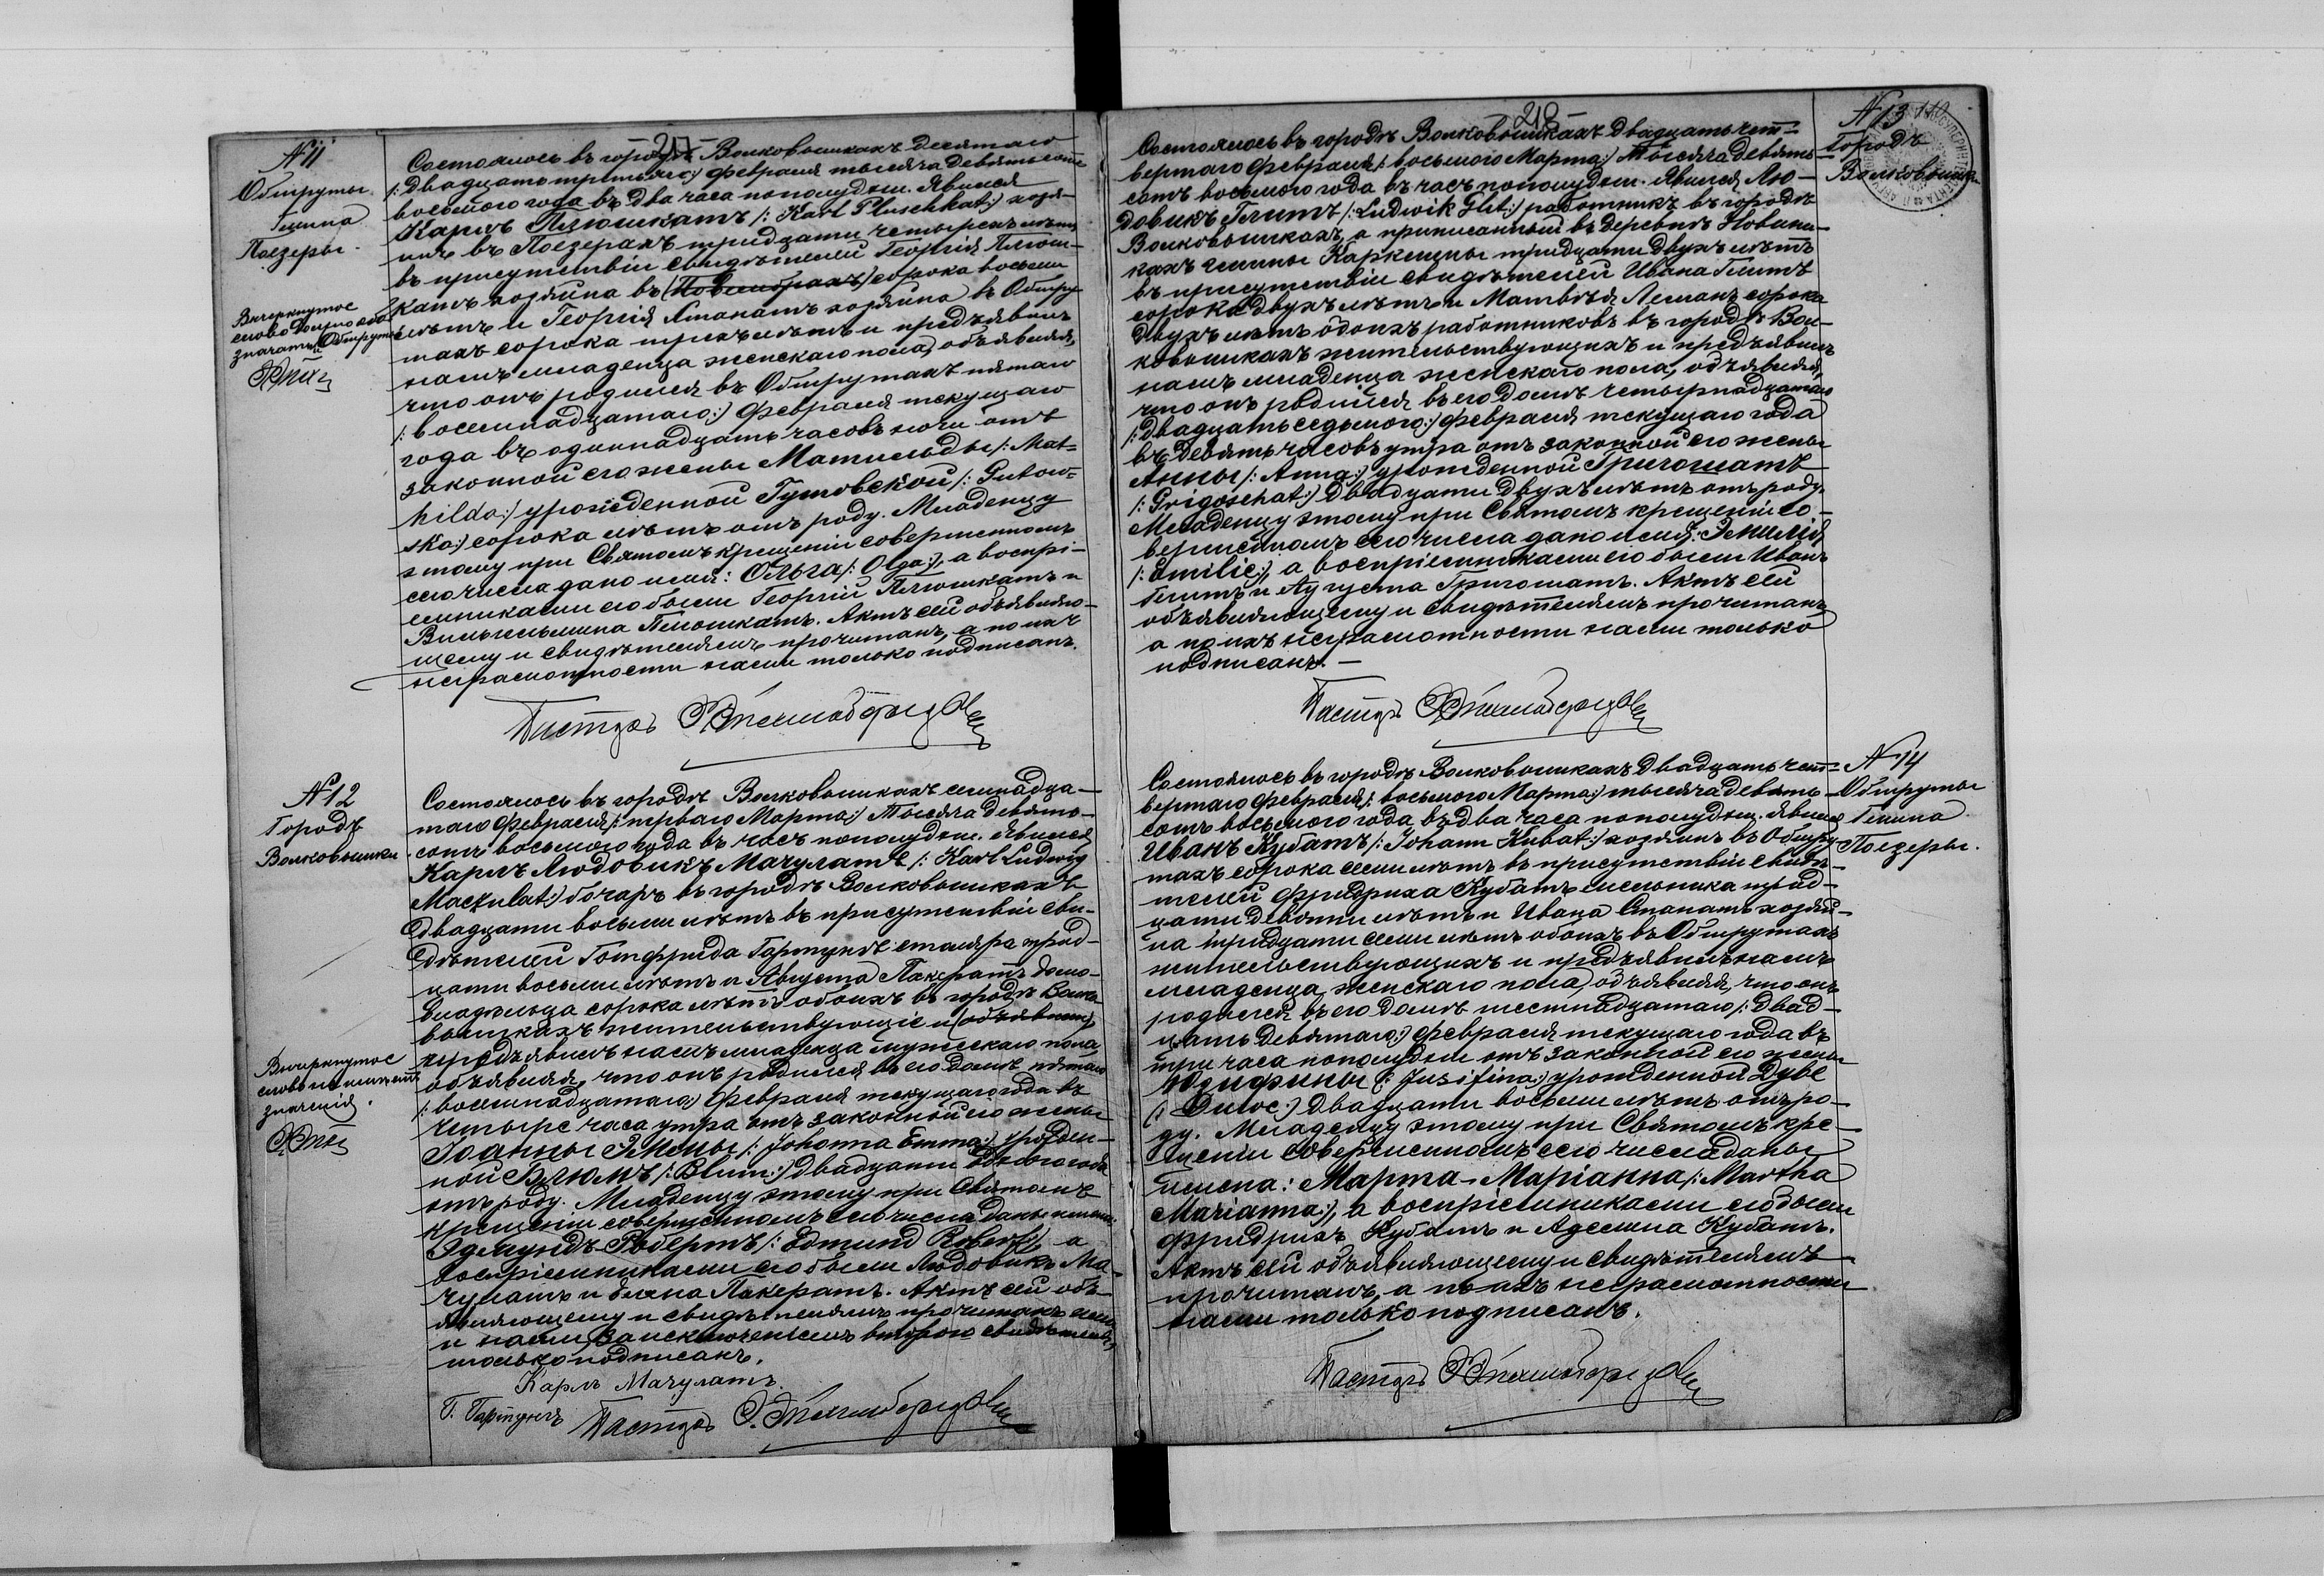 217
N 11
Обшруты.
Гмина
Поезеры.
Вычеркнутое
слово должно обо-
значать: Обшруты
Состоялось въ городѣ Волковышкахъ десятаго
/: двадцать третьяго:/ Февраля тысяча девятьсотъ
восьмого года въ два часа пополудни. Явился
Карлъ Плюшкатъ /: Karl Pluschkat:/ хозя-
инъ въ Поезерахъ тридцати четырехъ лѣтъ
въ присутствіи свидѣтелей Георгія Плюш-
катъ хозяина въ сорока восьми
лѣтъ и Георгія Атанатъ хозяина въ Обшру-
тахъ сорока трехъ лѣтъ и предъявилъ
намъ младенца женскаго пола, объявляя,
что онъ родился въ Обшрутахъ пятаго
/: восемнадцатаго:/ Февраля текущаго
года въ одиннадцать часовъ ночи отъ
законной его жены Матильды /: Mat=
hilda:/ урожденной Гутовской /: Gutow=
ska:/ сорока лѣтъ отъ роду. Младенцу
этому при Святомъ крещеніи совершенномъ
сего числа дано имя: Ольга /: Olga:/, а воспрі-
емниками его были Георгій Плюшкатъ и
Вильгельмина Плюшкатъ. Актъ сей объявляю-
щему и свидѣтелямъ прочитанъ, а по ихъ
неграмотности нами только подписанъ.
Пасторъ
N 12
Городъ
Волковышки.
Вычеркнутое
слово не имѣетъ
значенія.
Состоялось въ городѣ Волковышкахъ семнадца-
таго Февраля /: перваго Марта:/ Тысяча девять-
сотъ восьмого года въ часъ пополудни. Явился
Карлъ Людовикъ Мачулатъ /: Karl Ludwig
Maczulat:/ бочаръ въ городѣ Волковышкахъ
двадцати восьми лѣтъ въ присутствіи сви-
дѣтелей Готфрида Гартунгъ столяра трид-
цати восьми лѣтъ и Августа Пакератъ домо-
владѣльца сорока лѣтъ обоихъ въ городѣ Волко-
вышкахъ жительствующіе и (объявилъ)
предъявилъ намъ младенца мужескаго пола,
объявляя, что онъ родился въ его домѣ пятаго
/: восемнадцатаго:/ Февраля текущаго года въ
четыре часа утра отъ законной его жены
Іоанны Эммы /: Johanna Emma:/ урожден-
ной Блюмъ /: Blum:/ двадцати одного года
отъ роду. Младенцу этому при Святомъ
крещеніи совершенномъ сего числа даны имена:
Эдмундъ-Робертъ /: Edmund Robert:/, а
воспріемниками его были Людовикъ Ма-
чулатъ и Пакератъ. Актъ сей объ-
являющему и свидѣтелямъ прочитанъ, ими
и нами за исключеніемъ второго свидѣтеля,
только подписанъ.
Карлъ Мачулатъ
Г. Гартунгъ Пасторъ
218
N 13
Городъ
Волковышки
Состоялось въ городѣ Волковышкахъ двадцать чет-
вертаго Февраля /: восьмого Марта:/ Тысяча девять-
сотъ восьмого года въ часъ пополудни. Явился Лю-
довикъ Глитъ /: Ludwik Glit:/ работникъ въ городѣ
Волковышкахъ, а приписанный въ деревнѣ Новини-
кахъ гмины Каркеляны тридцати двухъ лѣтъ
въ присутствіи свидѣтелей Ивана Глитъ
сорока двухъ лѣтъ и Матвѣя Леманъ сорока
двухъ лѣтъ обоихъ работниковъ въ городѣ Вол-
ковышкахъ жительствующихъ и предъявилъ
намъ младенца женскаго пола, объявляя,
что онъ родился въ его домѣ четырнадцатаго
/: двадцать седьмого:/ Февраля текущаго года
въ девять часовъ утра отъ законной его жены
Анны /: Anna:/ урожденной Григошатъ
/: Grigoschat:/ двадцати двухъ лѣтъ отъ роду.
Младенцу этому при Святомъ крещеніи со-
вершенномъ сего числа дано имя: Эмилія
/: Emilie:/, а воспріемниками его были Иванъ
Глитъ и Августа Григошатъ. Актъ сей
объявляющему и свидѣтелямъ прочитанъ,
а по ихъ неграмотности нами только
подписанъ. —
Пасторъ
N 14
Обшруты
Гмина
Поезеры.
Состоялось въ городѣ Волковышкахъ двадцать чет-
вертаго Февраля /: восьмого Марта:/ тысяча девять-
сотъ восьмого года въ два часа пополудни. Явился
Иванъ Кубатъ /: Johann Kubat:/ хозяинъ въ Обшру-
тахъ сорока семи лѣтъ въ присутствіи свидѣ-
телей Фридриха Кубатъ мельника трид-
цати девяти лѣтъ и Ивана Атанатъ хозяи-
на тридцати семи лѣтъ обоихъ въ Обшрутахъ
жительствующихъ и предъявилъ намъ
младенца женскаго пола, объявляя, что онъ
родился въ его домѣ шестнадцатаго /: двад-
цать девятаго:/ Февраля текущаго года въ
три часа пополудни отъ законной его жены
Юзифины /: Jusifina:/ урожденной Дуве
/: Duwe:/ двадцати восьми лѣтъ отъ ро-
ду. Младенцу этому при Святомъ кре-
щеніи совершенномъ сего числа даны
имена: Марта-Маріанна /: Martha
Marianna:/, а воспріемниками его были
Фридрихъ Кубатъ и Аделина Кубатъ.
Актъ сей объявляющему и свидѣтелямъ
прочитанъ, а по ихъ неграмотности
нами только подписанъ.
Пасторъ